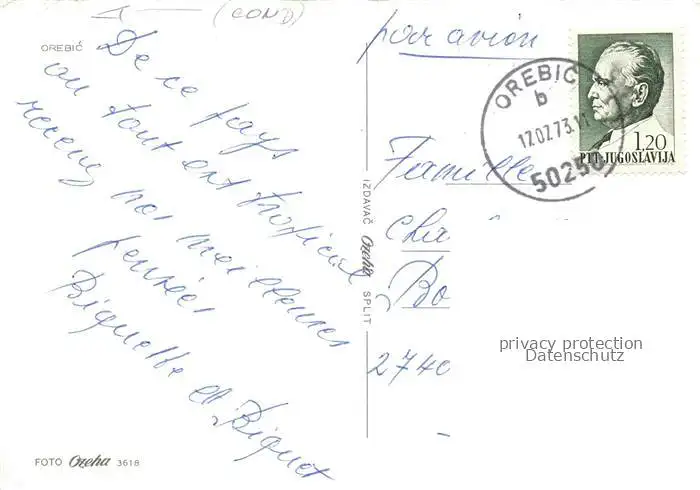 (COND)
OREBIĆ
De ce pays
ou tout est tropical
recevez nos meilleures
pensées
Biquette et Biquet
FOTO Ozeha 3618
IZDAVAČ Ozeha SPLIT
par avion
OREBIĆ
b
17.07.73.11
50250
1,20
PTT JUGOSLAVIJA
Famille
Cha
Bo
2740
privacy protection
Datenschutz